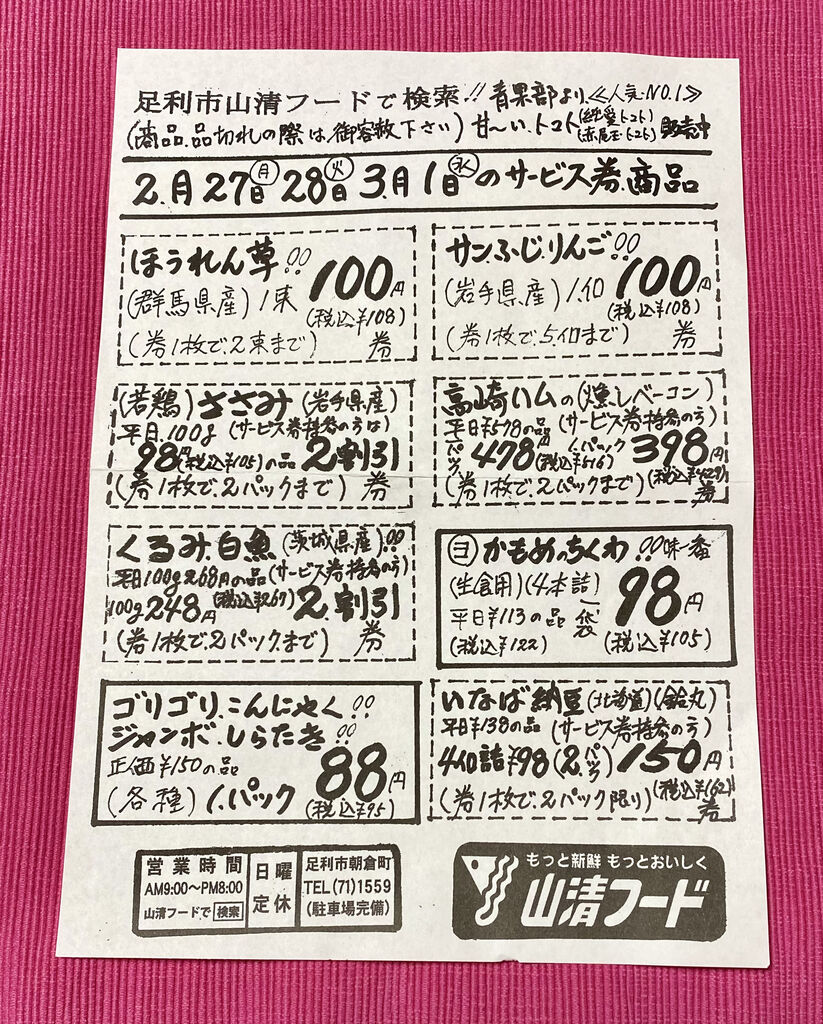 足利市山清フードで検索!! 青果部より、≪人気NO.1≫
(商品、品切れの際は、御容赦下さい) 甘〜い、トマト (純愛トマト) (赤尾玉トマト) 販売中
2.月27日(月)28日(火)3.月1日(水)のサービス券、商品
ほうれん草!!
(群馬県産) 1束 100円
(税込¥108)
(券1枚で、2束まで) 券
サンふじ、りんご!!
(岩手県産) 1.コ 100円
(税込¥108)
(券1枚で、5コまで) 券
(若鶏) ささみ (岩手県産)
平日.100g (サービス券持参の方は)
98円(税込¥105)の品 2割引
(券1枚で、2パックまで) 券
高崎ハムの(燻しベーコン)
平日¥578の品 (サービス券持参の方)
1パック 478円(税込¥516) 1.パック 398円
(税込¥429)
(券1枚で、2パックまで) 券
くるみ、白魚 (茨城県産)!!
平日100g268円の品 (サービス券持参の方)
100g248円 (税込¥267) 2.割引
(券1枚で、2パックまで) 券
ヨ かもめっちくわ!!味一番
(生食用) (4本詰)
平日¥113の品 一袋 98円
(税込¥122) (税込¥105)
ゴリゴリ、こんにゃく!!
ジャンボ、しらたき!!
正価¥150の品
(各種) 1.パック 88円
(税込¥95)
いなば納豆 (北海道)(鈴丸)
平日¥138の品 (サービス券持参の方)
4コ詰¥98 (2.パック) 150円
(税込¥162)
(券1枚で、2パック限り) 券
営業時間
AM9:00〜PM8:00
山清フードで 検索
日曜
定休
足利市朝倉町
TEL(71)1559
(駐車場完備)
もっと新鮮 もっとおいしく
山清フード